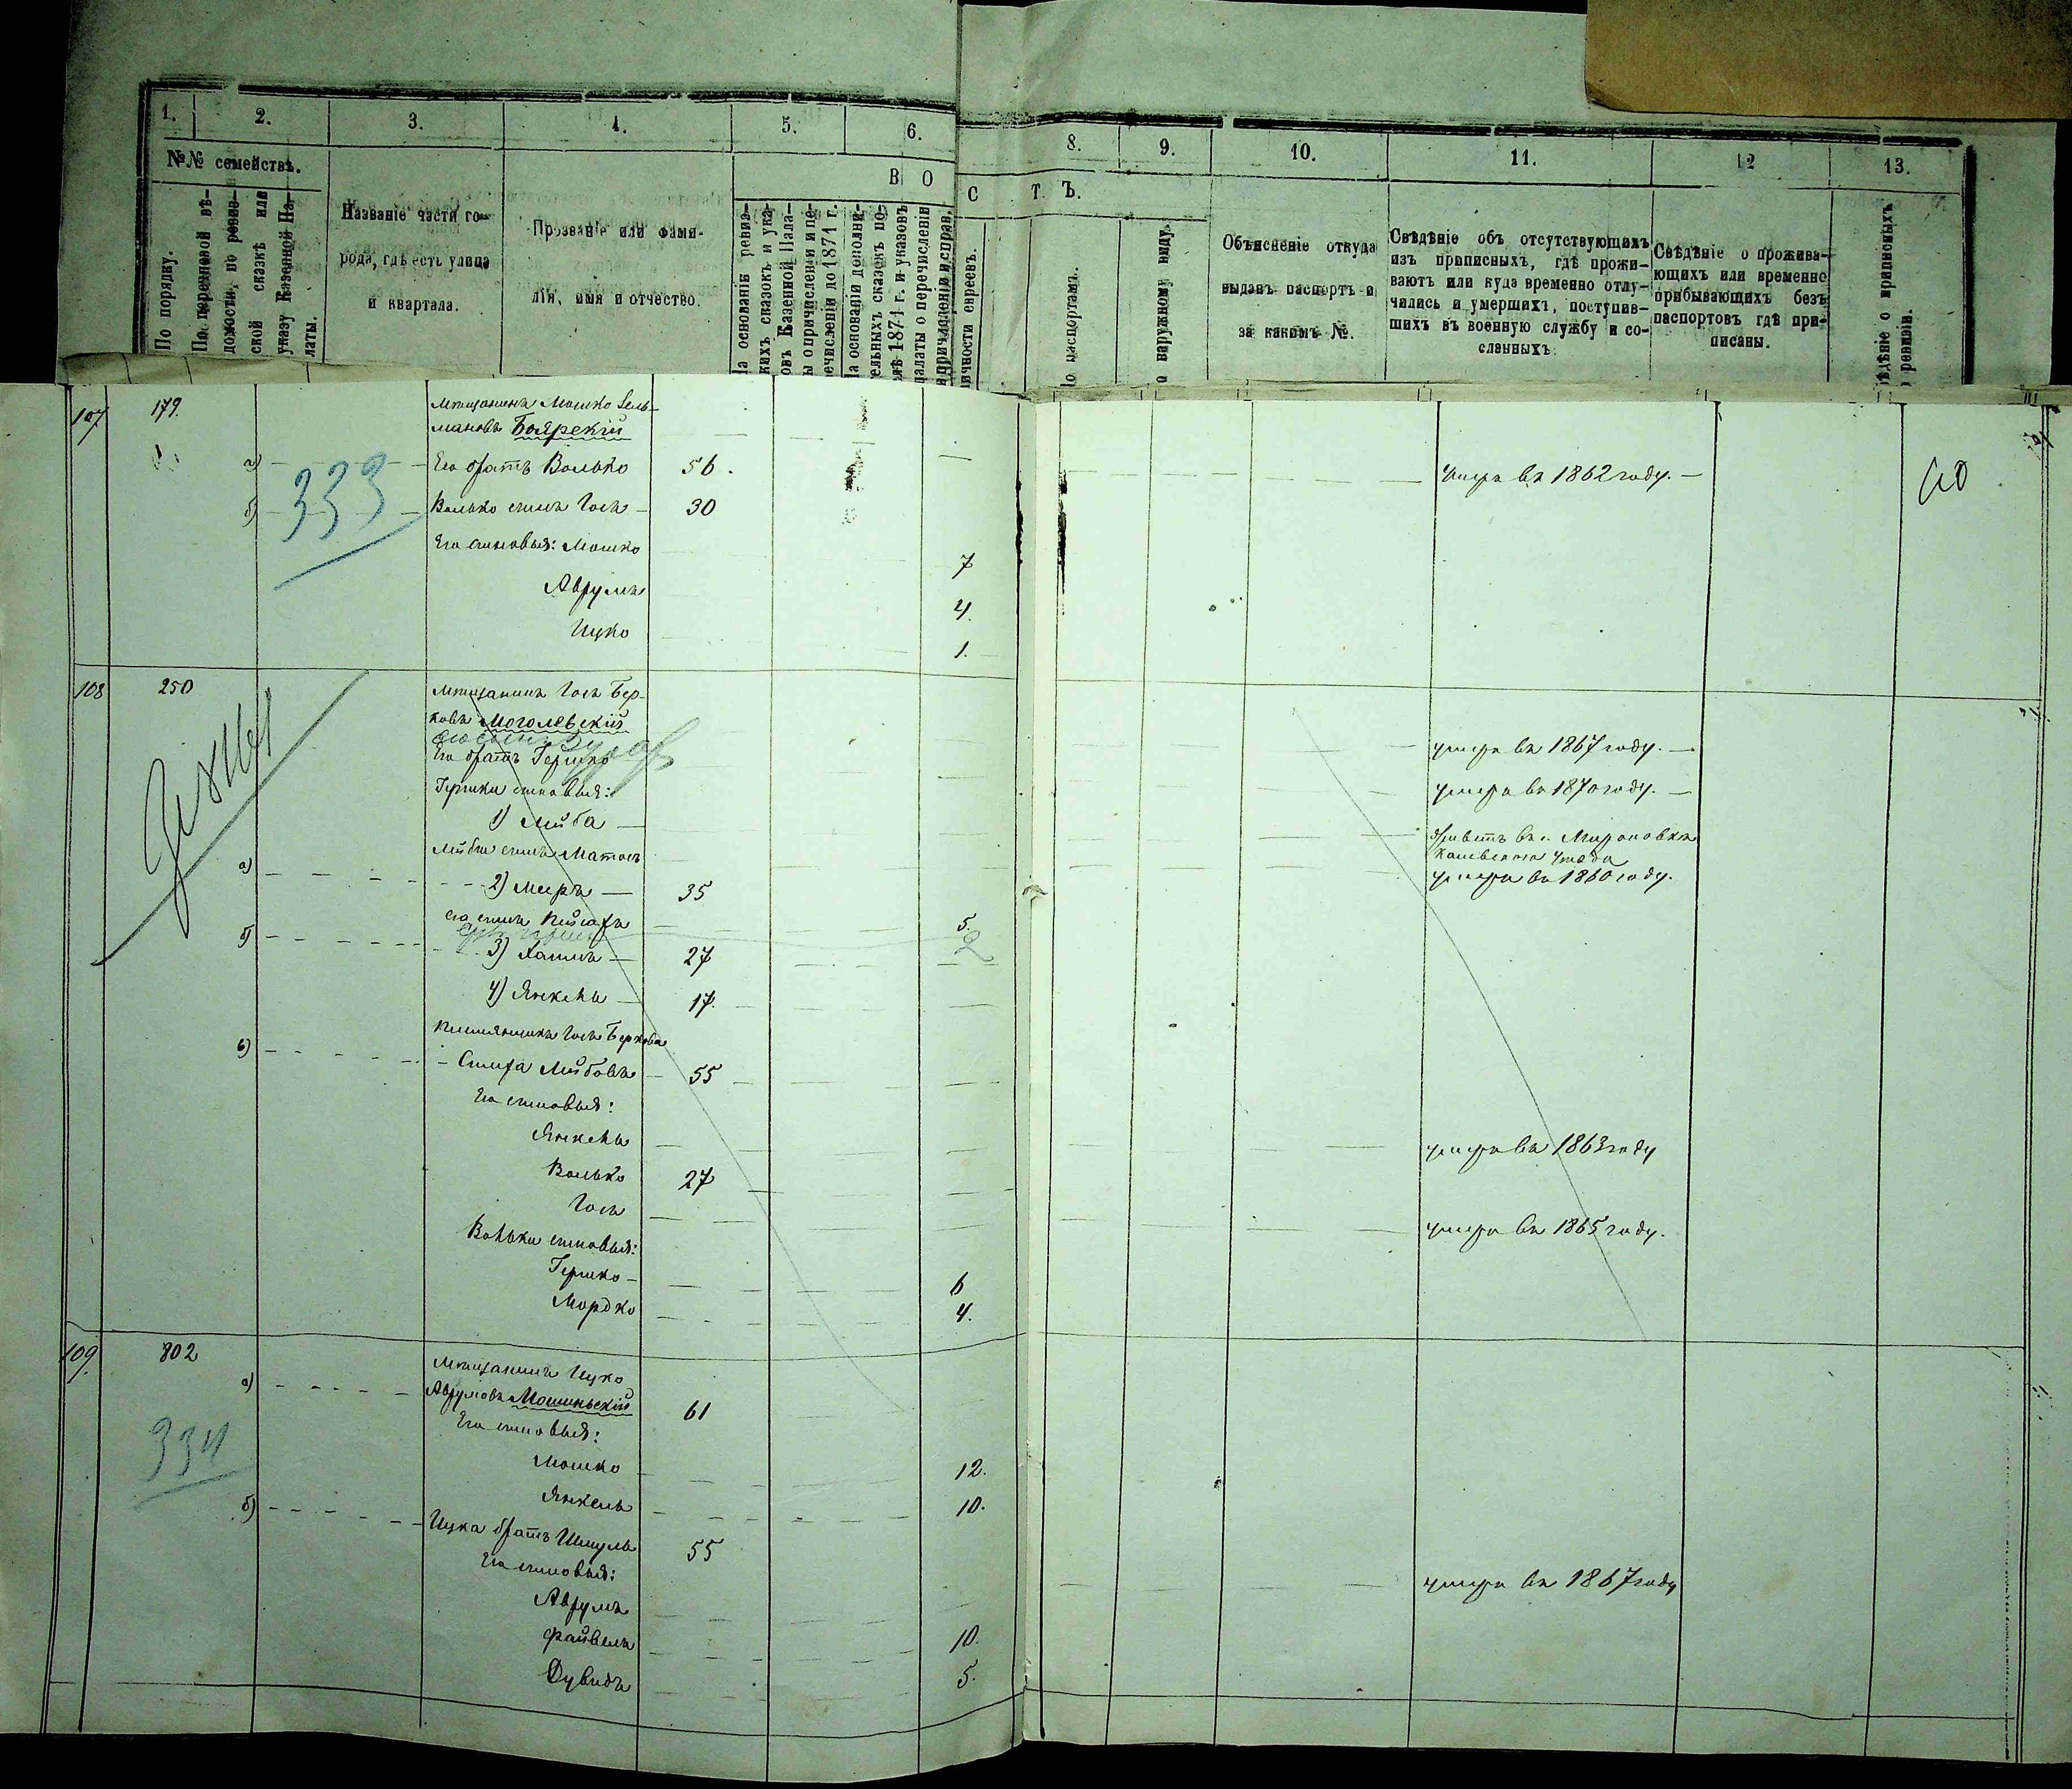 1.
2.
3.
4.
5.
6.
8.
9.
10.
11.
12
13.
№№ семействъ.
По порядку.
По переписной вѣ-
домости, по ревиз-
ской сказкѣ или
указу Казенной Па-
латы.
Названіе части го-
рода, гдѣ есть улица
и квартала.
Прозваніе или фами-
лія, имя и отчество.
В О
С Т Ъ.
На основаніи ревиз-
скихъ сказокъ и ука-
зовъ Казенной Пала-
ты о причисленіи и пе-
речисленіи до 1871 г.
На основаніи дополни-
тельныхъ сказокъ по-
слѣ 1871 г. и указовъ
палаты о перечисленіи
и причисленіи и справ.
личности евреевъ.
По паспортамъ.
По наружному виду.
Объясненіе откуда
выданъ паспортъ и
за какимъ №.
Свѣдѣніе объ отсутствующихъ
изъ приписныхъ, гдѣ прожи-
ваютъ или куда временно отлу-
чились и умершихъ, поступив-
шихъ въ военную службу и со-
сланныхъ
Свѣдѣніе о прожива-
ющихъ или временно
прибывающихъ безъ
паспортовъ гдѣ при-
писаны.
Свѣдѣніе о приписныхъ
ревизіи.
107 179. Мѣщанинъ Мошко Зель-
мановъ Боярскій
а) Его братъ Волько 56. умеръ въ 1862 году.
333
б) Волько сынъ Іосъ 30
Его сыновья: Мошко 7
Аврумъ 4.
Ицко 1.
108 250 Мѣщанинъ Іосъ Бер-
ковъ Моголевскій умеръ въ 1867 году.
Его братъ Гершко умеръ въ 1870 году.
Гершки сыновья:
1) Лейба живетъ въ с. Мироновкѣ
Каневскаго уѣзда
Лейбы сынъ Матосъ умеръ въ 1860 году.
а) 2) Меиръ 35
его сынъ 5.
2
б) 3) Хаимъ 27
4) Янкель 17.
Племянникъ Іося Беркова
в) Симха Лейбовъ 55
Его сыновья:
Янкель умеръ въ 1863 году
Волько 27
Іось умеръ въ 1865 году.
Вольки сыновья:
Гершко 6
Мордко 4.
109. 802 Мѣщанинъ Ицко
а) Аврумовъ Мошиньскій 61
334
Его сыновья:
Мошко 12.
Янкель 10.
б) Ицка братъ Шмуль 55
Его сыновья:
Аврумъ умеръ въ 1867 году
Файвель 10.
Дувидъ 5.